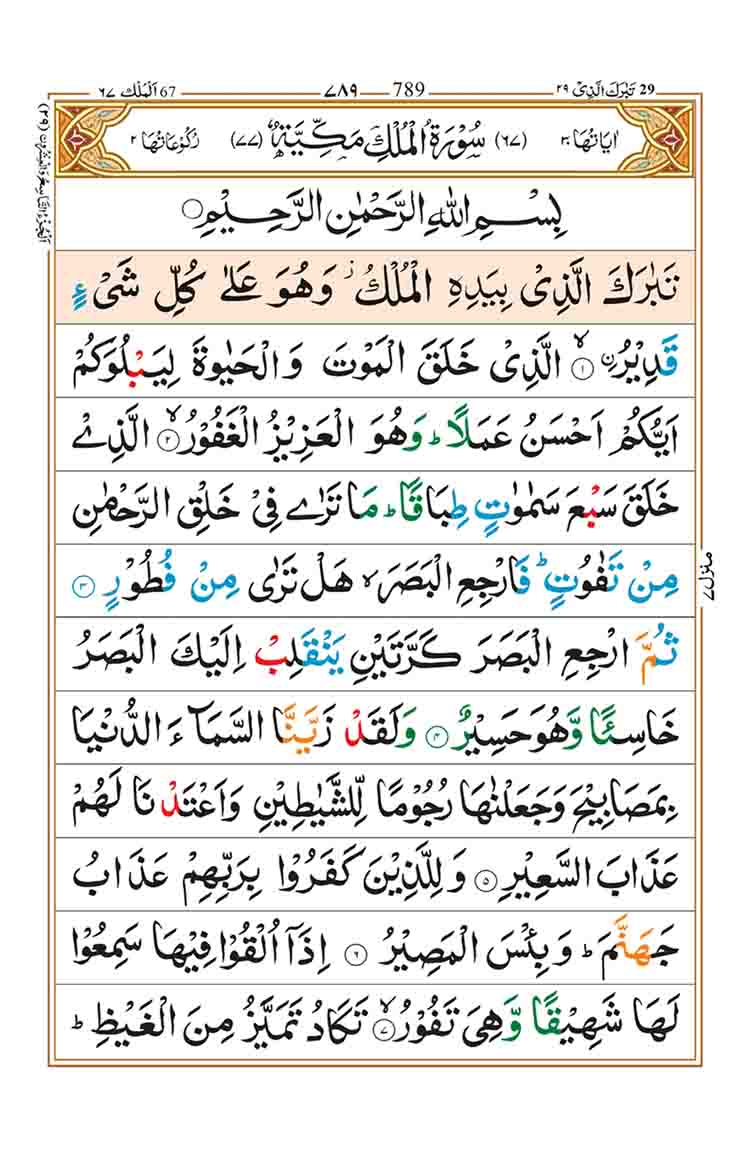 29 تَبٰرَكَ الَّذِیْ ۲۹ 789 ۷۸۹ 67 اَلْمُلْك ۶۷
اٰيَاتُهَا ۳۰ (۶۷) سُوْرَةُ الْمُلْكِ مَكِّيَّةٌ (۷۷) رُكُوْعَاتُهَا ۲
بِسْمِ اللهِ الرَّحْمٰنِ الرَّحِيْمِ۝
تَبٰرَكَ الَّذِیْ بِيَدِهِ الْمُلْكُ ز وَهُوَ عَلٰى كُلِّ شَیْءٍ
قَدِيْرُ ۨ ۙ﴿۱﴾ الَّذِیْ خَلَقَ الْمَوْتَ وَالْحَيٰوةَ لِيَبْلُوَكُمْ
اَيُّكُمْ اَحْسَنُ عَمَلًا ؕ وَهُوَ الْعَزِيْزُ الْغَفُوْرُ ۙ﴿۲﴾ الَّذِیْ
خَلَقَ سَبْعَ سَمٰوٰتٍ طِبَاقًا ؕ مَا تَرٰى فِیْ خَلْقِ الرَّحْمٰنِ
مِنْ تَفٰوُتٍ ؕ فَارْجِعِ الْبَصَرَ ۙ هَلْ تَرٰى مِنْ فُطُوْرٍ ﴿۳﴾
ثُمَّ ارْجِعِ الْبَصَرَ كَرَّتَيْنِ يَنْقَلِبْ اِلَيْكَ الْبَصَرُ
خَاسِئًا وَّهُوَ حَسِيْرٌ ﴿۴﴾ وَلَقَدْ زَيَّنَّا السَّمَآءَ الدُّنْيَا
بِمَصَابِيْحَ وَجَعَلْنٰهَا رُجُوْمًا لِّلشَّيٰطِيْنِ وَاَعْتَدْنَا لَهُمْ
عَذَابَ السَّعِيْرِ ﴿۵﴾ وَلِلَّذِيْنَ كَفَرُوْا بِرَبِّهِمْ عَذَابُ
جَهَنَّمَ ؕ وَبِئْسَ الْمَصِيْرُ ﴿۶﴾ اِذَآ اُلْقُوْا فِيْهَا سَمِعُوْا
لَهَا شَهِيْقًا وَّهِیَ تَفُوْرُ ۙ﴿۷﴾ تَكَادُ تَمَيَّزُ مِنَ الْغَيْظِ ؕ
اَلْجُزْءُ التَّاسِعُ وَالْعِشْرُوْنَ (۲۹)
منزل ۷